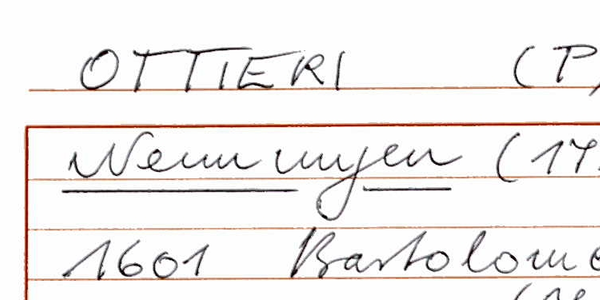 OTTIERI (P
Nennungen (17
1601 Bartolome